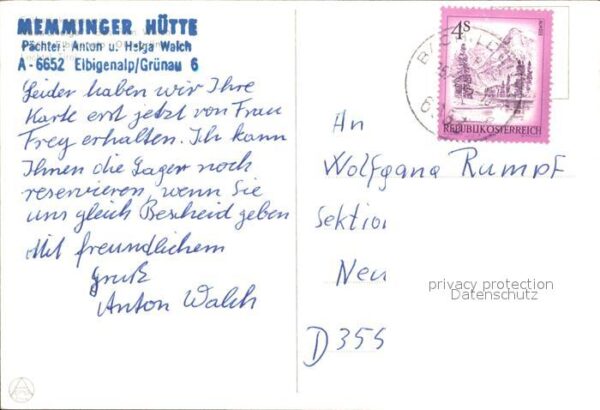 MEMMINGER HÜTTE
Pächter: Anton u. Helga Walch
A - 6652 Elbigenalp/Grünau 6
Leider haben wir Ihre
Karte erst jetzt von Frau
Frey erhalten. Ich kann
Ihnen die Lager noch
reservieren, wenn Sie
uns gleich Bescheid geben
Mit freundlichem
Gruß
Anton Walch
4S
REPUBLIK ÖSTERREICH
An
Wolfgang Rumpf
Sektion
Neu
privacy protection
Datenschutz
D 355